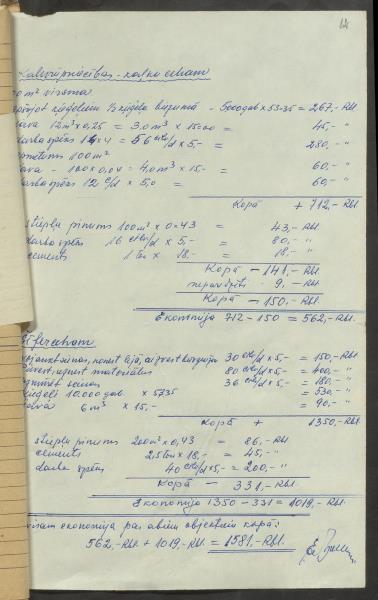 12
Kaļķrūpniecības - kaļķu ceham
0 m² virsma
ķieģeļiem ½ ķieģeļa biezumā - 5000 gab × 53-35 = 267,- Rbl.
java 12 m³ × 0,25 = 3.0 m³ × 15.00 = 45,- "
darba spēks 14 × 4 = 56 c/d × 5,- = 280,- "
apmetums 100 m²
java - 100 × 0,04 = 4,0 m³ × 15,- = 60,- "
darba spēks 12 c/d × 5,0 = 60,- "
Kopā + 712,- Rbl.
stiepļu pinums 100 m² × 0.43 = 43,- Rbl.
darba spēks 16 c/d × 5,- = 80,- "
cements 1 ton × 18,- = 18,- "
Kopā - 141,- Rbl.
neparedzēts - 9,- Rbl.
Kopā - 150,- Rbl.
Ekonomija 712 - 150 = 562,- Rbl.
Šīferceham
30 c/d × 5,- = 150,- Rbl.
materiālus 80 c/d × 5,- = 400,- "
sienas 36 c/d × 5,- = 180,- "
ķieģeļi 10.000 gab. × 57.35 = 530,- "
java 6 m³ × 15,- = 90,- "
Kopā + 1350,- Rbl.
stiepļu pinums 200 m² × 0,43 = 86,- Rbl.
cements 2.5 ton × 18,- = 45,- "
darba spēks 40 c/d × 5,- = 200,- "
Kopā - 331,- Rbl.
Ekonomija 1350 - 331 = 1019,- Rbl.
visam ekonomija par abiem objektiem kopā:
562,- Rbl. + 1019,- Rbl. = 1581,- Rbl.